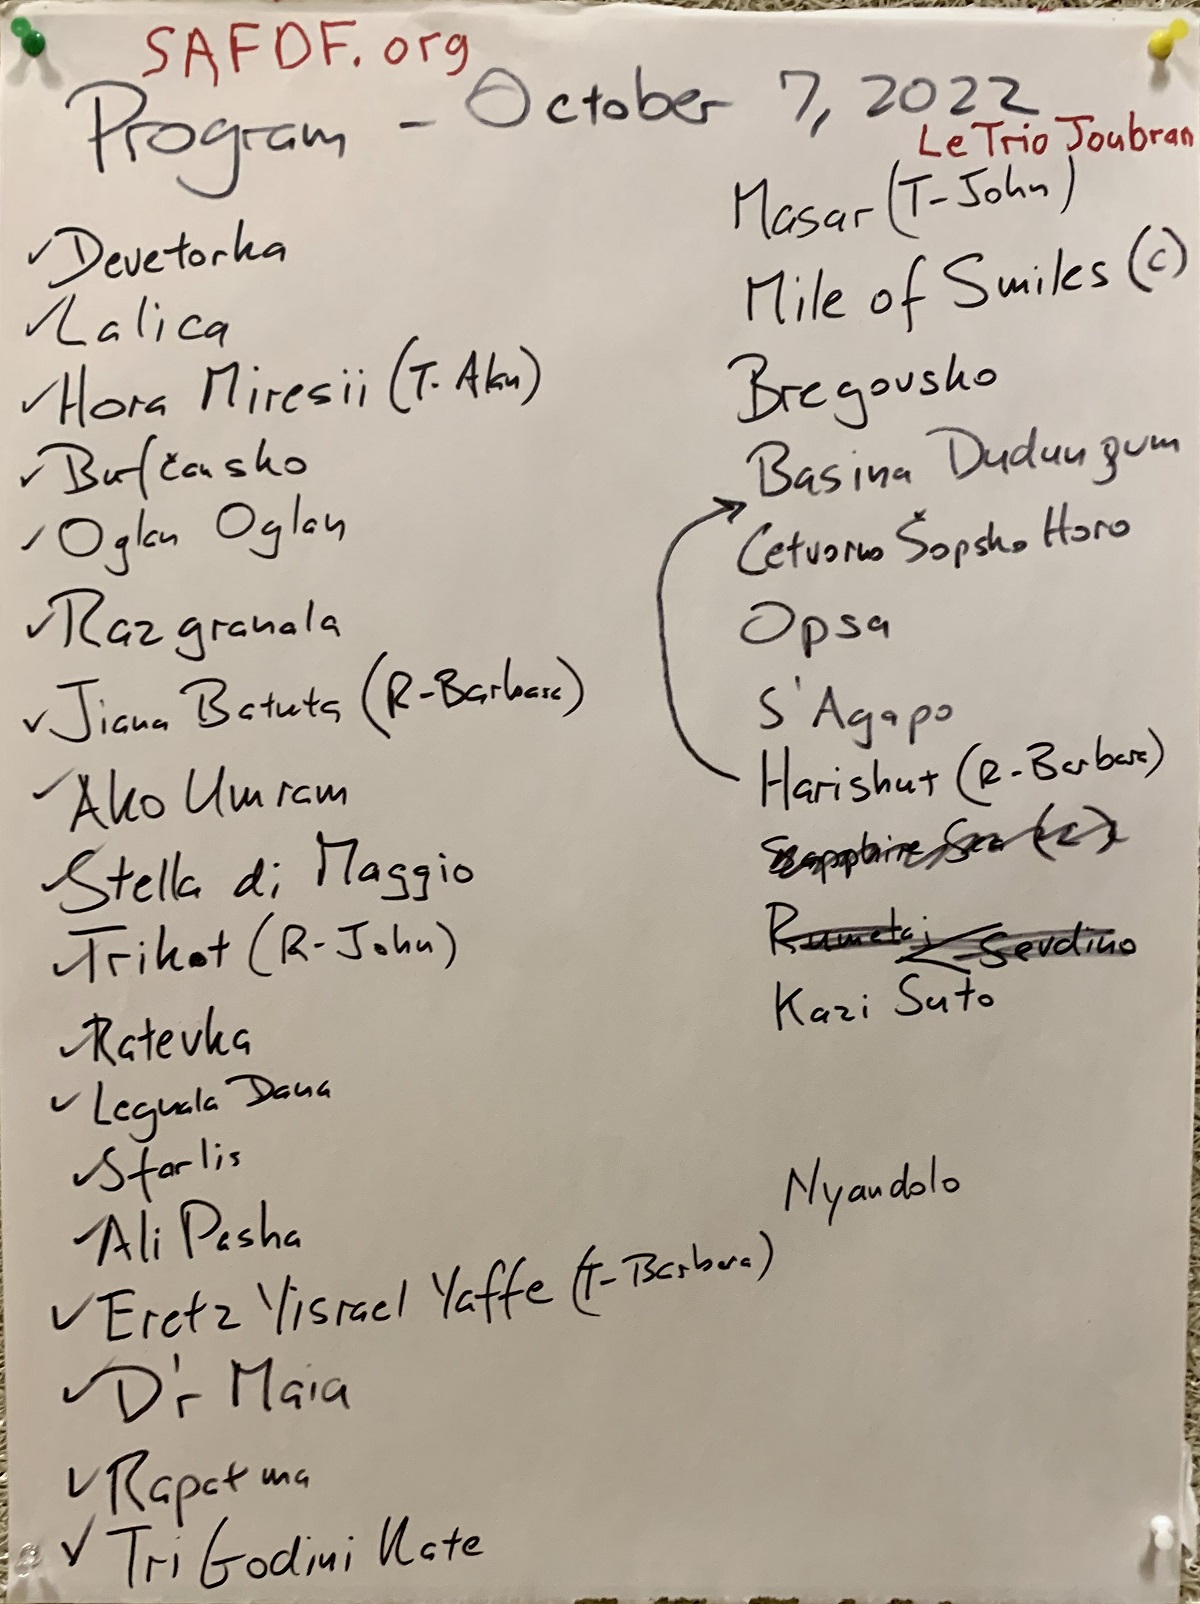 SAFDF.org
Program - October 7, 2022
✓ Devetorka
✓ Lalica
✓ Hora Miresii (T. Alan)
✓ Bufčansko
✓ Oglan Oglan
✓ Razgranala
✓ Jiana Batuta (R-Barbara)
✓ Ako Umram
✓ Stella di Maggio
✓ Trikot (R-John)
✓ Ratevka
✓ Legnala Dana
✓ Starlis
✓ Ali Pasha
✓ Eretz Yisrael Yaffe (T-Barbara)
✓ D'r Maia
✓ Rapatma
✓ Tri Godini Kate
Le Trio Joubran
Masar (T-John)
Mile of Smiles (C)
Bregovsko
Basina Dudunzum
Cetvorno Šopsko Horo
Opsa
S'Agapo
Harishut (R-Barbara)
Sapphire Sea (C)
Rumelaj < Sevdino
Kazi Suto
Nyandolo